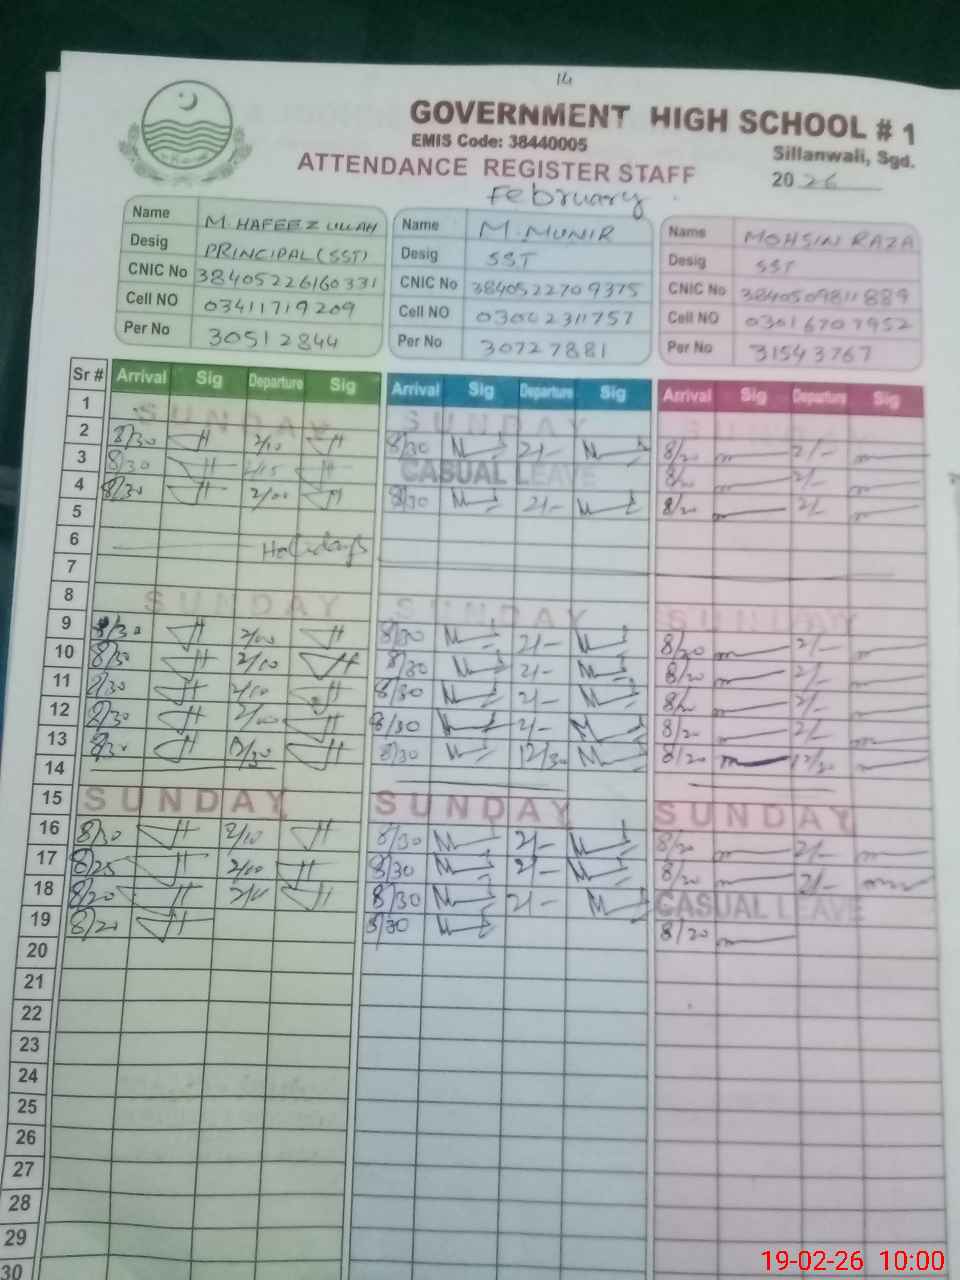 14
GOVERNMENT HIGH SCHOOL # 1
EMIS Code: 38440005
Sillanwali, Sgd.
ATTENDANCE REGISTER STAFF
2026
February
Name M. HAFEEZ ULLAH Name M. MUNIR Name MOHSIN RAZA
Desig PRINCIPAL (SST) Desig SST Desig SST
CNIC No 38405226160331 CNIC No 3840522709375 CNIC No 3840509811889
Cell NO 03411719209 Cell NO 03002311757 Cell NO 03016707952
Per No 30512844 Per No 30727881 Per No 31543767
Sr # Arrival Sig Departure Sig Arrival Sig Departure Sig Arrival Sig Departure Sig
1 SUNDAY SUNDAY SUNDAY
2 8/30 2/10 8/30 2/- 8/20 2/-
3 8/30 2/15 CASUAL LEAVE 8/20 2/-
4 8/30 2/00 8/30 2/- 8/20 2/-
5
6 Holidays
7
8 SUNDAY SUNDAY SUNDAY
9 8/30 2/00 8/30 2/- 8/20 2/-
10 8/30 2/10 8/30 2/- 8/20 2/-
11 8/30 2/10 8/30 2/- 8/20 2/-
12 8/30 2/00 8/30 2/- 8/20 2/-
13 8/30 12/30 8/30 12/30 8/20 12/30
14
15 SUNDAY SUNDAY SUNDAY
16 8/30 2/10 8/30 2/- 8/20 2/-
17 8/25 2/00 8/30 2/- 8/20 2/-
18 8/20 8/30 2/- CASUAL LEAVE
19 8/20 8/30 8/20
20
21
22
23
24
25
26
27
28
29
30
19-02-26 10:00